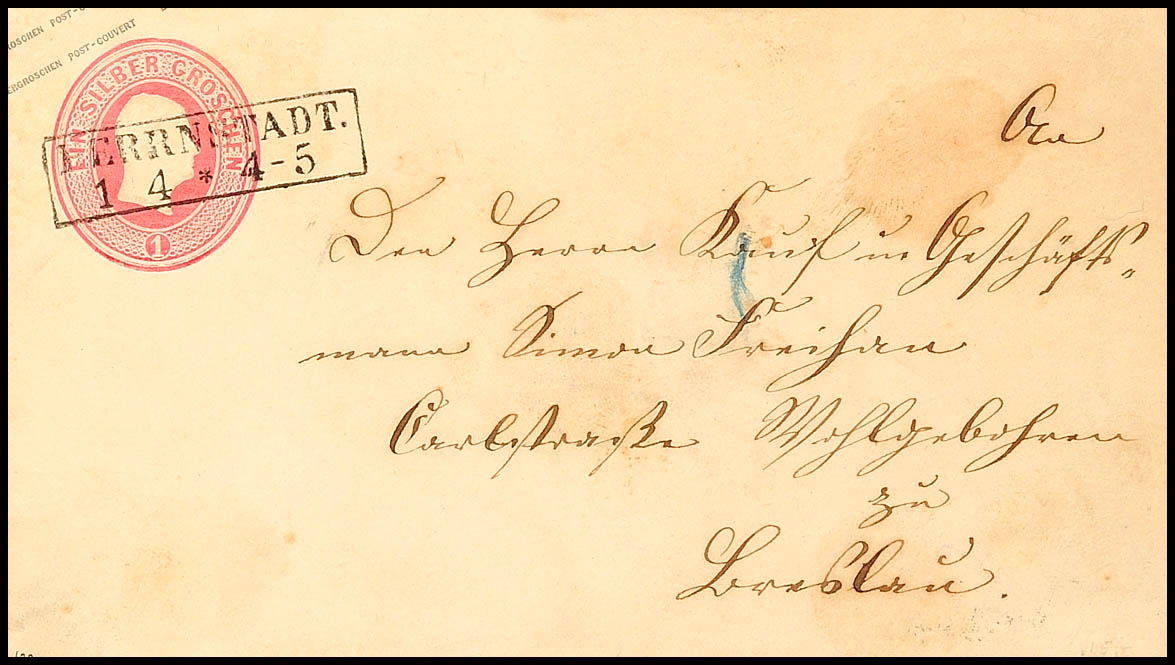 ROSCHEN POST-COUVERT
ERGROSCHEN POST-COUVERT
EIN SILBER GROSCHEN
1
HERRNSTADT.
1 4 * 4-5
An
Den Herrn Kauf u Geschäfts„
mann Simon Freihan
Carlsstraße Wohlgebohren
zu
Breslau.